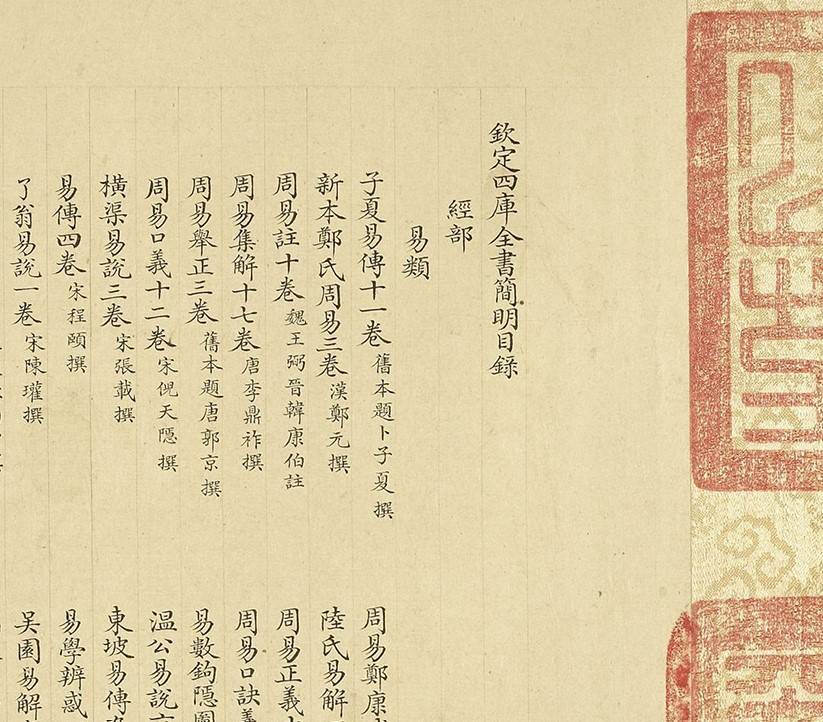 欽定四庫全書簡明目錄
經部
易類
子夏易傳十一卷 舊本題卜子夏撰
周易鄭康
新本鄭氏周易三卷 漢鄭元撰
陸氏易解
周易註十卷 魏王弼晉韓康伯註
周易正義
周易集解十七卷 唐李鼎祚撰
周易口訣義
周易舉正三卷 舊本題唐郭京撰
易數鉤隱圖
周易口義十二卷 宋倪天隱撰
温公易說
橫渠易說三卷 宋張載撰
東坡易傳
易傳四卷 宋程頤撰
易學辨惑
了翁易說一卷 宋陳瓘撰
吳園易解